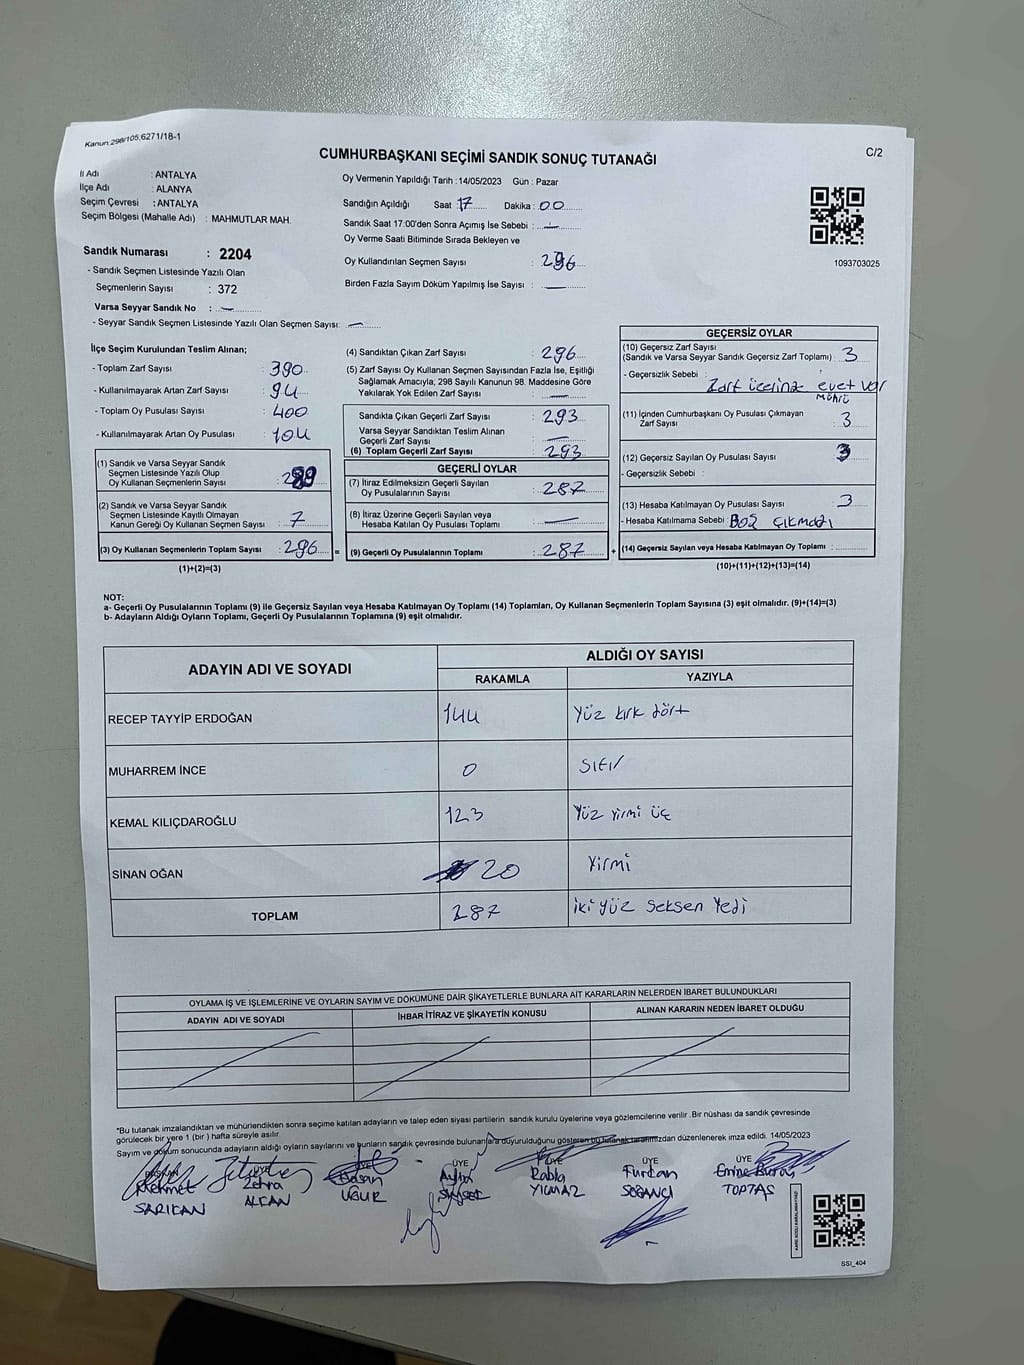 Kanun:298/105;6271/18-1
CUMHURBAŞKANI SEÇİMİ SANDIK SONUÇ TUTANAĞI
C/2
İl Adı : ANTALYA
İlçe Adı : ALANYA
Seçim Çevresi : ANTALYA
Seçim Bölgesi (Mahalle Adı) : MAHMUTLAR MAH.
Sandık Numarası : 2204
- Sandık Seçmen Listesinde Yazılı Olan
Seçmenlerin Sayısı : 372
Varsa Seyyar Sandık No : —
- Seyyar Sandık Seçmen Listesinde Yazılı Olan Seçmen Sayısı: —
Oy Vermenin Yapıldığı Tarih :14/05/2023 Gün : Pazar
Sandığın Açıldığı Saat : 17 Dakika : 00
Sandık Saat 17:00'den Sonra Açımış İse Sebebi : —
Oy Verme Saati Bitiminde Sırada Bekleyen ve
Oy Kullandırılan Seçmen Sayısı : 296
Birden Fazla Sayım Döküm Yapılmış İse Sayısı : —
1093703025
İlçe Seçim Kurulundan Teslim Alınan;
- Toplam Zarf Sayısı : 390
- Kullanılmayarak Artan Zarf Sayısı : 94
- Toplam Oy Pusulası Sayısı : 400
- Kullanılmayarak Artan Oy Pusulası : 104
(1) Sandık ve Varsa Seyyar Sandık
Seçmen Listesinde Yazılı Olup
Oy Kullanan Seçmenlerin Sayısı : 289
(2) Sandık ve Varsa Seyyar Sandık
Seçmen Listesinde Kayıtlı Olmayan
Kanun Gereği Oy Kullanan Seçmen Sayısı : 7
(3) Oy Kullanan Seçmenlerin Toplam Sayısı : 296 =
(1)+(2)=(3)
(4) Sandıktan Çıkan Zarf Sayısı : 296
(5) Zarf Sayısı Oy Kullanan Seçmen Sayısından Fazla İse, Eşitliği
Sağlamak Amacıyla; 298 Sayılı Kanunun 98. Maddesine Göre
Yakılarak Yok Edilen Zarf Sayısı : —
Sandıkta Çıkan Geçerli Zarf Sayısı : 293
Varsa Seyyar Sandıktan Teslim Alınan
Geçerli Zarf Sayısı : —
(6) Toplam Geçerli Zarf Sayısı : 293
GEÇERLİ OYLAR
(7) İtiraz Edilmeksizin Geçerli Sayılan
Oy Pusulalarının Sayısı : 287
(8) İtiraz Üzerine Geçerli Sayılan veya
Hesaba Katılan Oy Pusulası Toplamı : —
(9) Geçerli Oy Pusulalarının Toplamı : 287 +
GEÇERSİZ OYLAR
(10) Geçersiz Zarf Sayısı
(Sandık ve Varsa Seyyar Sandık Geçersiz Zarf Toplamı) : 3
- Geçersizlik Sebebi : Zarf üzerine evet var
mührü
(11) İçinden Cumhurbaşkanı Oy Pusulası Çıkmayan
Zarf Sayısı : 3
(12) Geçersiz Sayılan Oy Pusulası Sayısı : 3
- Geçersizlik Sebebi :
(13) Hesaba Katılmayan Oy Pusulası Sayısı : 3
- Hesaba Katılmama Sebebi : Boş çıkmazı
(14) Geçersiz Sayılan veya Hesaba Katılmayan Oy Toplamı :
(10)+(11)+(12)+(13)=(14)
NOT:
a- Geçerli Oy Pusulalarının Toplamı (9) ile Geçersiz Sayılan veya Hesaba Katılmayan Oy Toplamı (14) Toplamları, Oy Kullanan Seçmenlerin Toplam Sayısına (3) eşit olmalıdır. (9)+(14)=(3)
b- Adayların Aldığı Oyların Toplamı, Geçerli Oy Pusulalarının Toplamına (9) eşit olmalıdır.
ADAYIN ADI VE SOYADI
ALDIĞI OY SAYISI
RAKAMLA YAZIYLA
RECEP TAYYİP ERDOĞAN 144 Yüz kırk dört
MUHARREM İNCE 0 Sıfır
KEMAL KILIÇDAROĞLU 123 Yüz yirmi üç
SİNAN OĞAN 20 Yirmi
TOPLAM 287 İki yüz seksen yedi
OYLAMA İŞ VE İŞLEMLERİNE VE OYLARIN SAYIM VE DÖKÜMÜNE DAİR ŞİKAYETLERLE BUNLARA AİT KARARLARIN NELERDEN İBARET BULUNDUKLARI
ADAYIN ADI VE SOYADI İHBAR İTİRAZ VE ŞİKAYETİN KONUSU ALINAN KARARIN NEDEN İBARET OLDUĞU
*Bu tutanak imzalandıktan ve mühürlendikten sonra seçime katılan adayların ve talep eden siyasi partilerin sandık kurulu üyelerine veya gözlemcilerine verilir .Bir nüshası da sandık çevresinde
görülecek bir yere 1 (bir ) hafta süreyle asılır.
Sayım ve döküm sonucunda adayların aldığı oyların sayılarını ve bunların sandık çevresinde bulunanlara duyurulduğunu gösteren bu tutanak tarafımızdan düzenlenerek imza edildi. 14/05/2023
BAŞKAN ÜYE ÜYE ÜYE ÜYE ÜYE ÜYE
Mehmet Zehra Hasan Aylin Rabia Furkan Emine Burnu
SARIKAN ALCAN UĞUR YILMAZ SOĞANCI TOPTAŞ
SSI_404